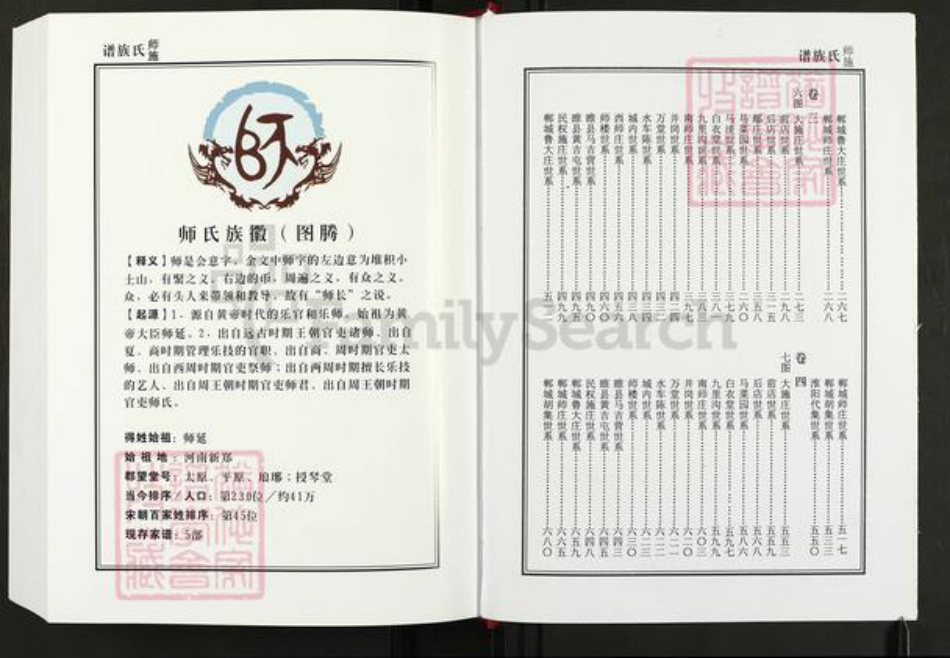 谱族氏师施
师氏族徽（图腾）
【释义】师是会意字。金文中师字的左边意为堆积小
土山，有聚之义。右边的币，周遍之义。有众之义。
众，必有头人来带领和教导，故有“师长”之说。
【起源】1、源自黄帝时代的乐官和乐师，始祖为黄
帝大臣师延。2、出自远古时期王朝官吏诸师、出自
夏、商时期管理乐技的官职、出自商、周时期官吏太
师、出自西周时期官吏祭师；出自西周时期擅长乐技
的艺人、出自周王朝时期官吏师君、出自周王朝时期
官吏师氏。
得姓始祖：师延
始祖地：河南新郑
郡望堂号：太原、平原、琅琊；授琴堂
当今排序／人口：第230位／约41万
宋朝百家姓排序：第45位
现存家谱：5部
谱族氏师施
郸城鲁大庄世系 二六七
郸城师庄世系 二六八
卷三
六图
大施庄世系 二七三
前店世系 二九八
后店世系 三一五
鄢庄世系 三五八
马菜园世系
白衣堂世系
九里沟世系 三八二
南师庄世系
井岗世系
万堂世系
水车陈世系
城内世系
西师庄世系
师楼世系
睢县马吉营世系
睢县黄吉屯世系
民权施庄世系
郸城鲁大庄世系
郸城师庄世系 五一七
郸城胡集世系 五三三
淮阳代集世系 五五〇
卷四
七图
大施庄世系 五五三
前店世系 五五九
后店世系 五六八
马菜园世系 五八六
白衣堂世系 五九七
九里沟世系 五九九
南师庄世系 六〇三
井岗世系 六一一
万堂世系 六二一
水车陈世系 六二二
城内世系 六二三
师楼世系 六三〇
睢县马吉营世系 六四三
睢县黄吉屯世系 六四五
民权施庄世系 六四八
郸城鲁大庄世系 六五九
郸城师庄世系 六六五
郸城胡集世系 六八〇
FamilySearch